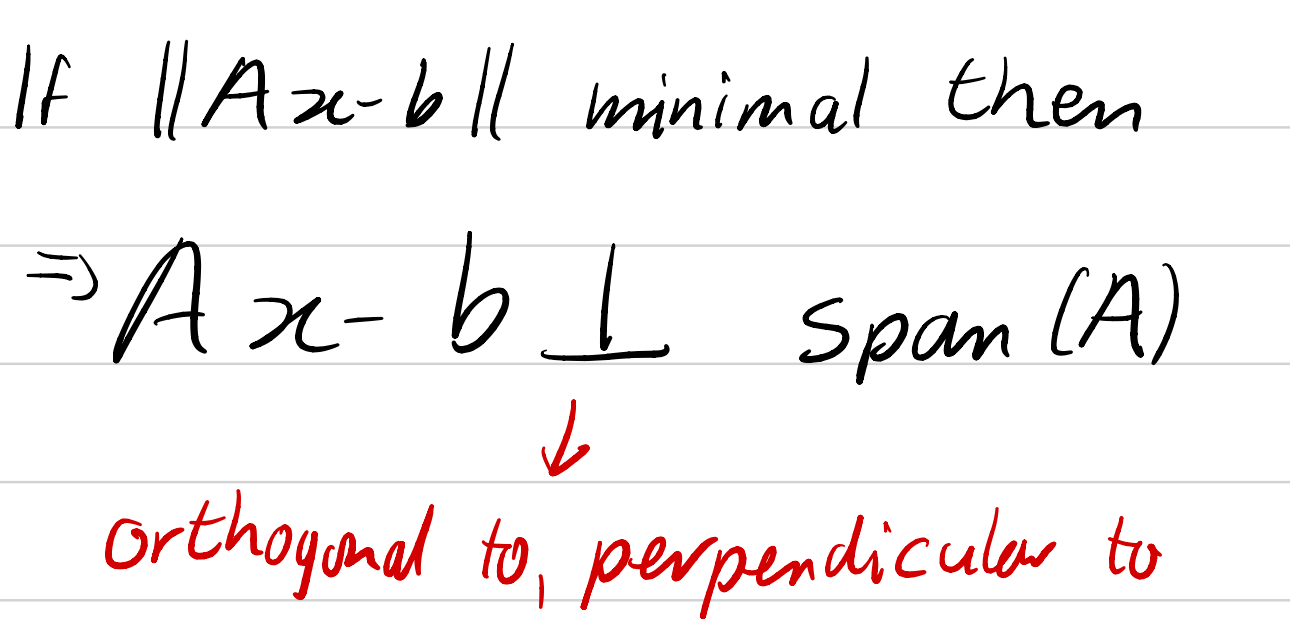 If ||Ax-b|| minimal then
⇒ Ax-b ⊥ span(A)
↓
orthogonal to, perpendicular to